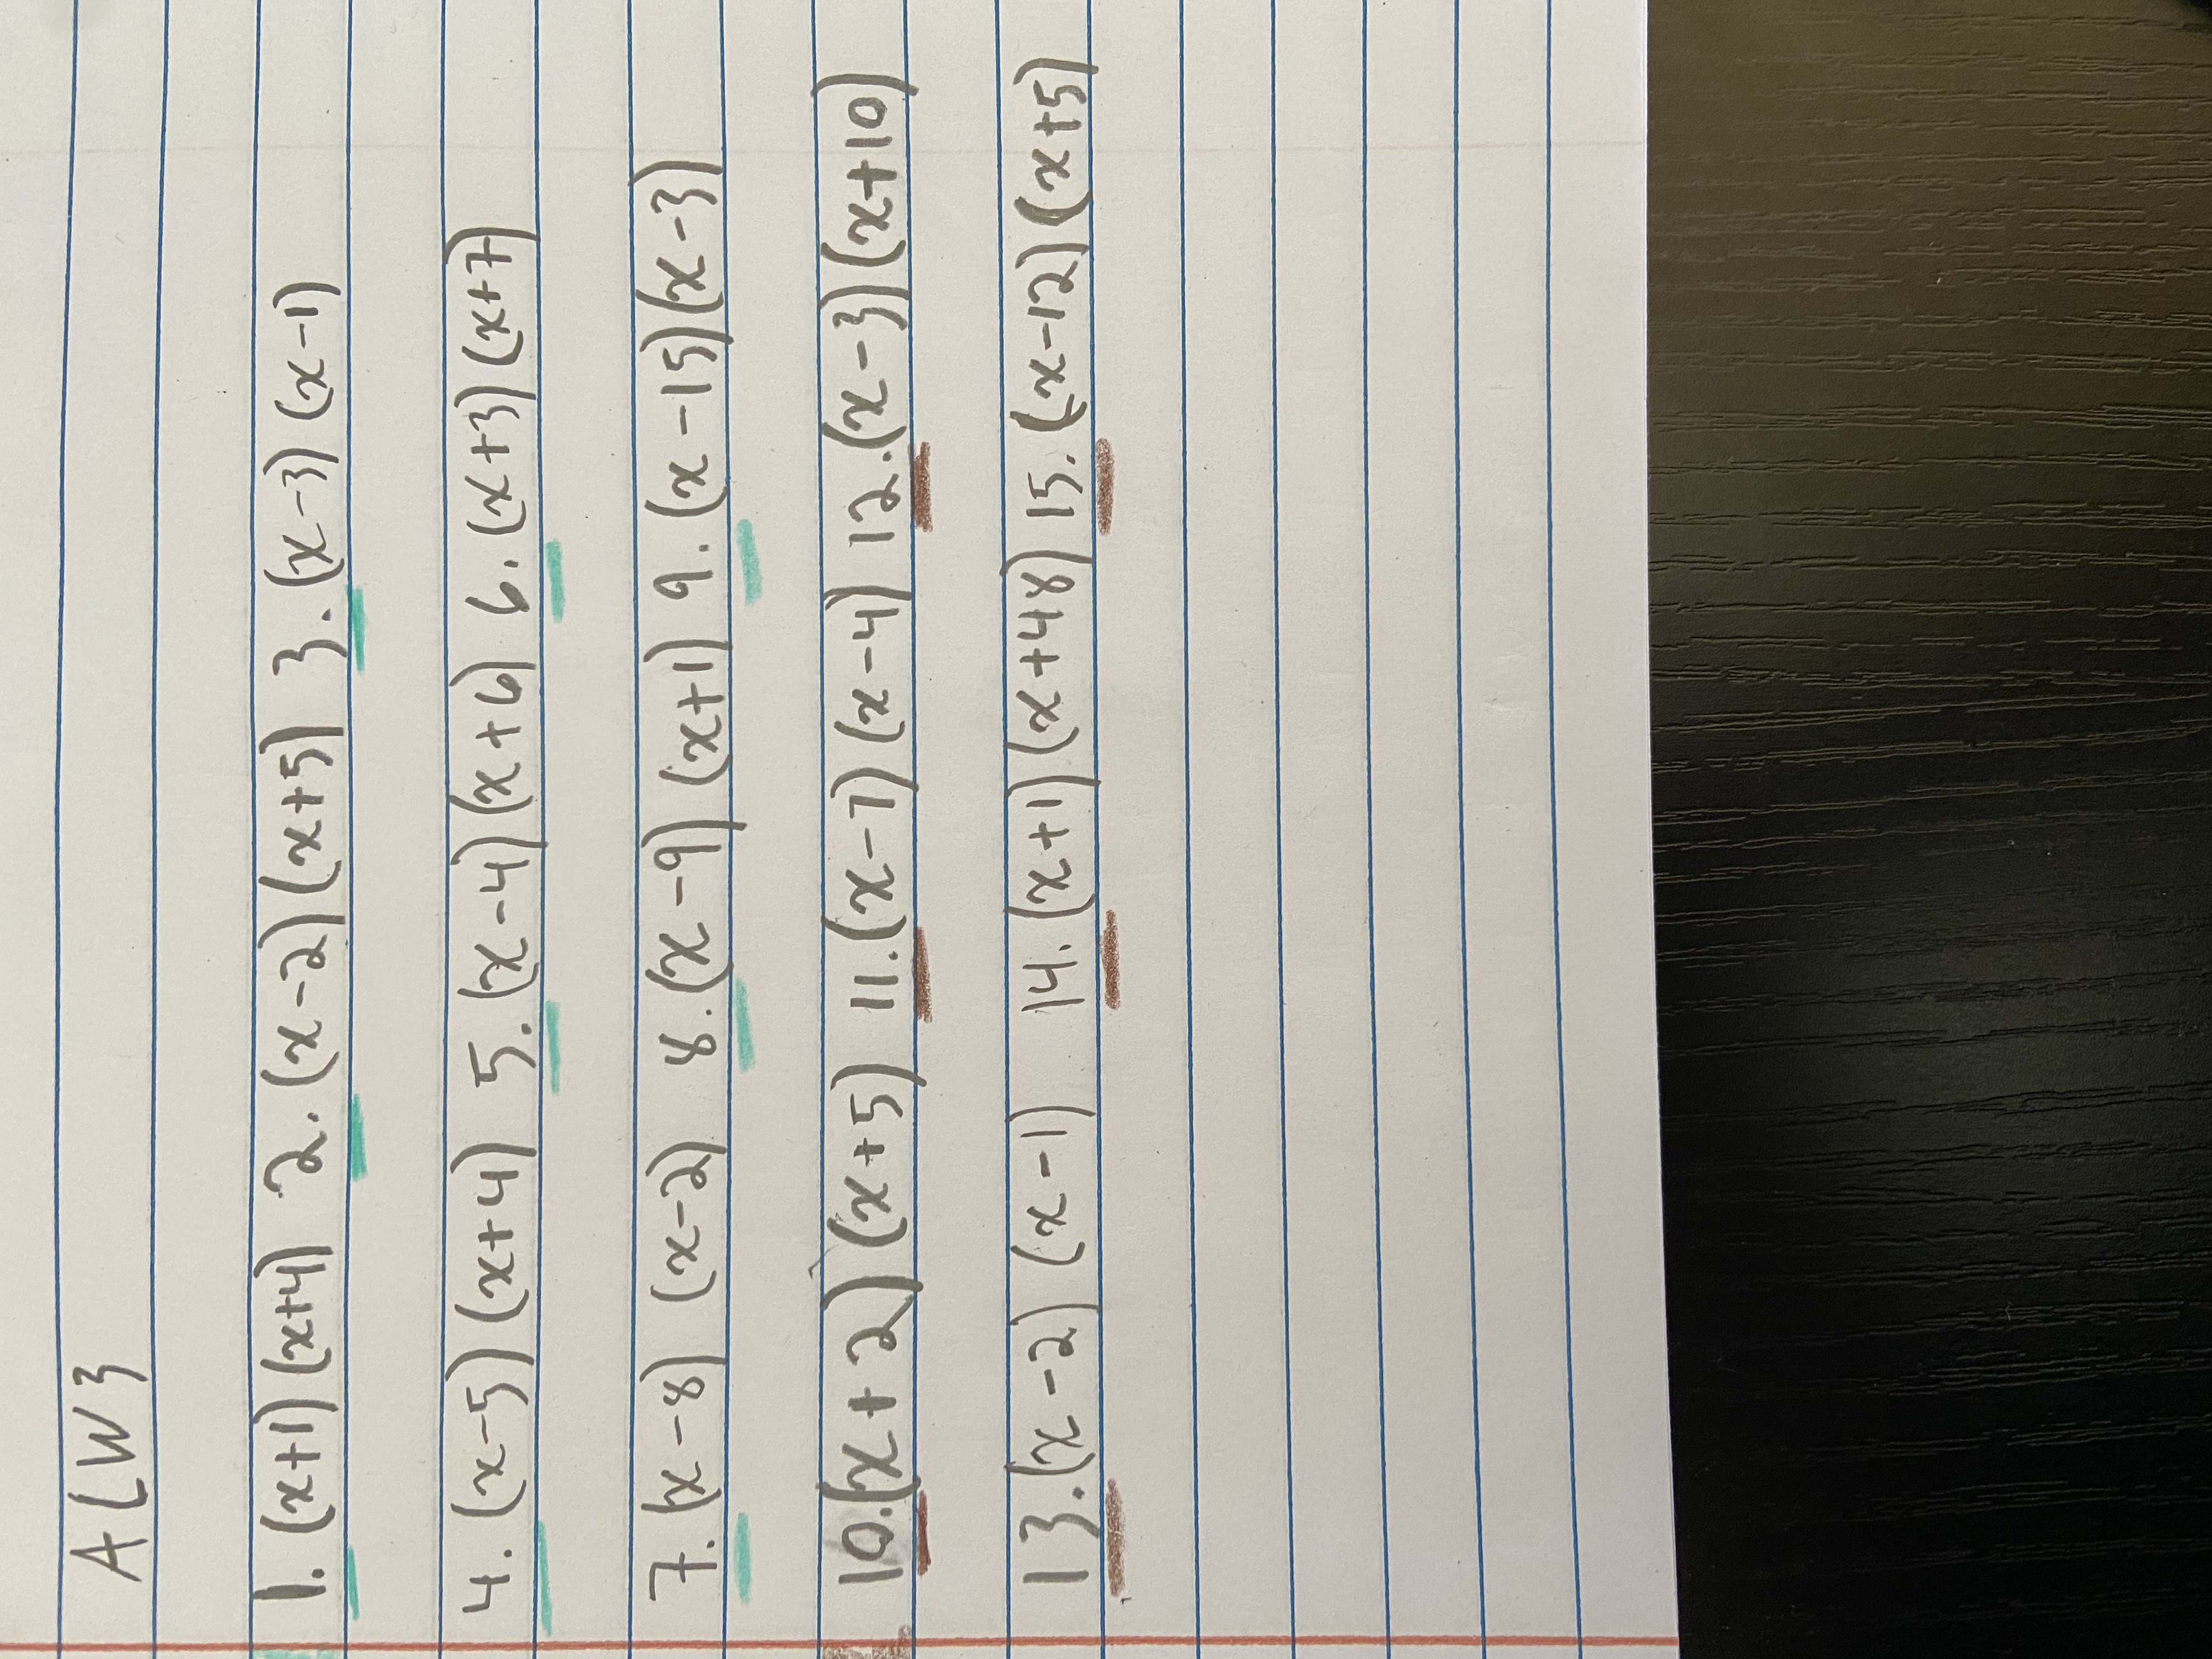 ALW3
1. (x+1) (x+4) 2. (x-2) (x+5) 3. (x-3) (x-1)
4. (x-5) (x+4) 5. (x-4) (x+6) 6. (x+3) (x+7)
7. (x-8) (x-2) 8. (x-9) (x+1) 9. (x-15) (x-3)
10. (x+2) (x+5) 11. (x-7) (x-4) 12. (x-3) (x+10)
13. (x-2) (x-1) 14. (x+1) (x+48) 15. (x-12) (x+5)